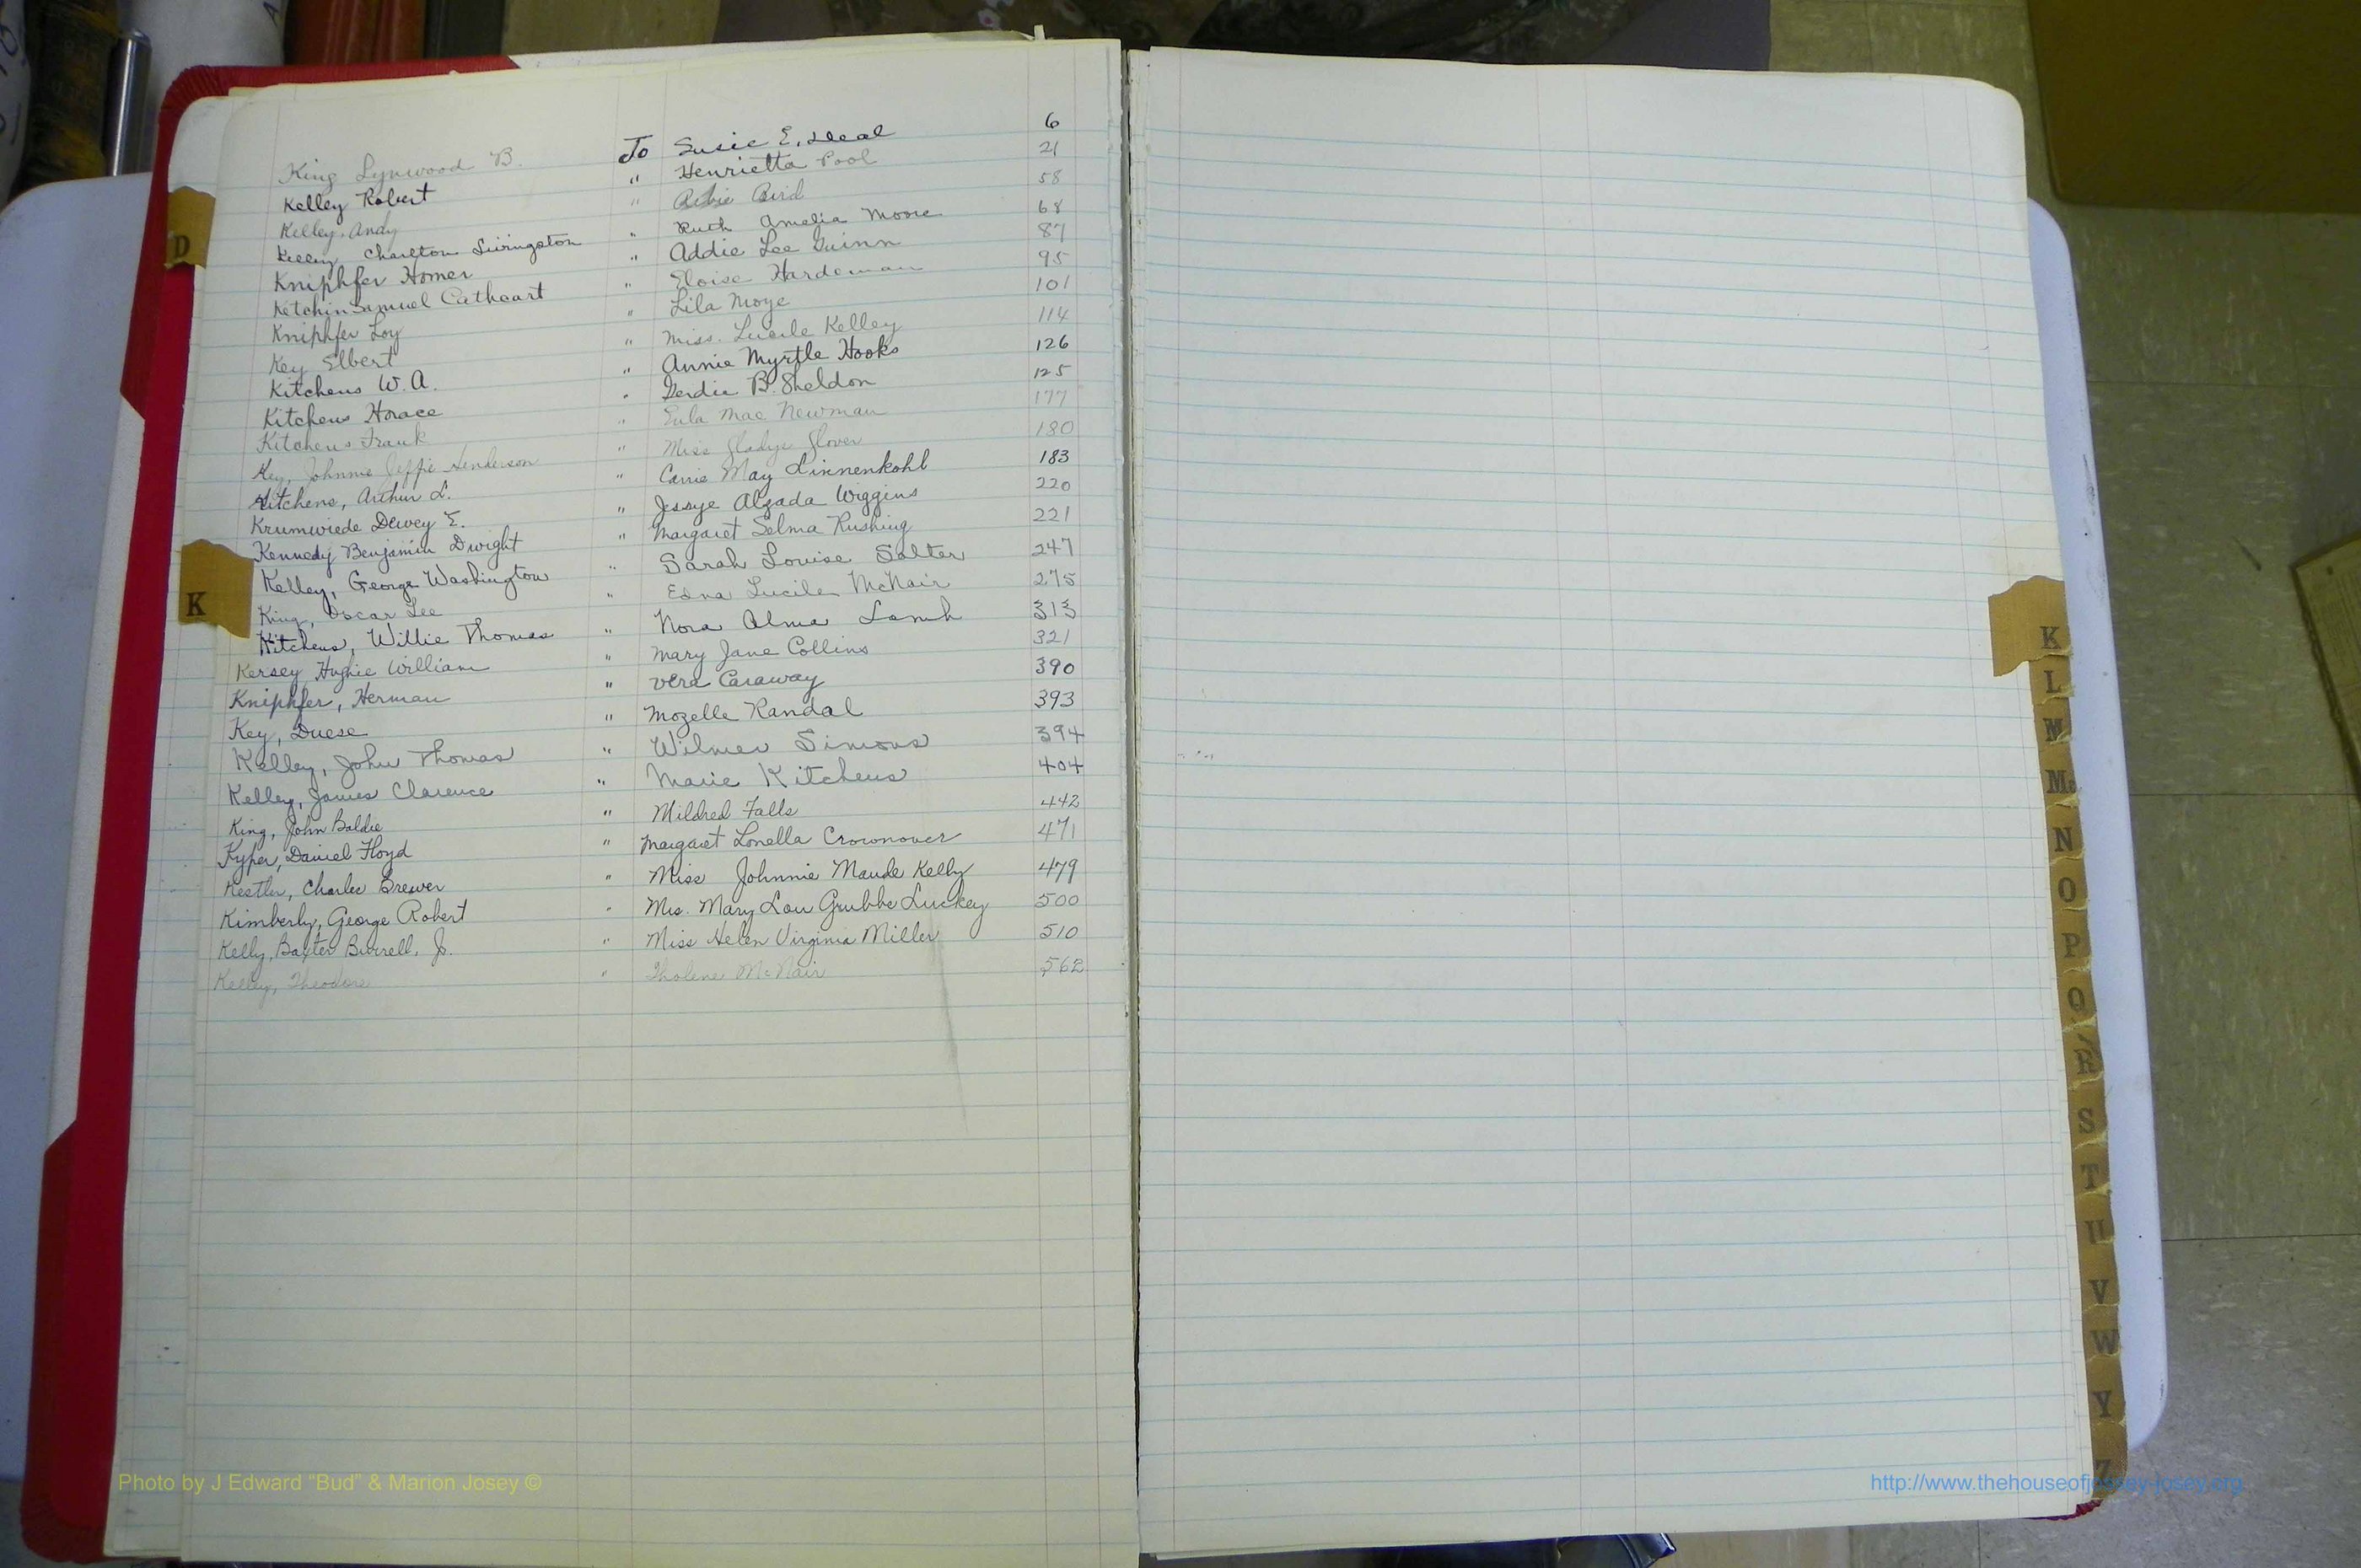 King Lynwood B. To Susie E. Deal 6
Kelley Robert " Henrietta Pool 21
Kelley, Andy " Bird 58
Kelley Charlton Livingston " Ruth Amelia Moore 68
Kniphfer Homer " Addie Lee Guinn 87
Ketchin Samuel Cathcart " Eloise Hardeman 95
Kniphfer Loy " Lila Moye 101
Key Elbert " Miss. Lucile Kelley 114
Kitchens W. A. " Annie Myrtle Hooks 126
Kitchens Horace " Gerdie B. Sheldon 125
Kitchens Frank " Eula Mae Newman 177
Key, Johnnie Jeffie Henderson " Miss Gladys Glover 180
Kitchens, Arthur L. " Carrie May Linnenkohl 183
Krumwiede Dewey E. " Jessye Alzada Wiggins 220
Kennedy Benjamin Dwight " Margaret Selma Rushing 221
Kelley, George Washington " Sarah Louise Salter 247
King, Oscar Lee " Edna Lucile McNair 275
Kitchens, Willie Thomas " Nora Alma Lamb 313
Kersey Hughie William " Mary Jane Collins 321
Kniphfer, Herman " Vera Caraway 390
Key, Duese " Mozelle Randal 393
Kelley, John Thomas " Wilmer Simons 394
Kelley, James Clarence " Marie Kitchens 404
King, John Baldie " Mildred Falls 442
Kyper, Daniel Floyd " Margaret Lonella Crownover 471
Kestler, Charlie Brewer " Miss Johnnie Maude Kelly 479
Kimberly, George Robert " Mrs. Mary Lou Grubbs Luckey 500
Kelly, Baxter Burrell, Jr. " Miss Helen Virginia Miller 510
Kelley, Theodore " McNair 562
D
K
K
L
M
Mc
N
O
P
Q
R
S
T
U
V
W
Y
Z
Photo by J Edward "Bud" & Marion Josey ©
http://www.thehouseofjossey-josey.org